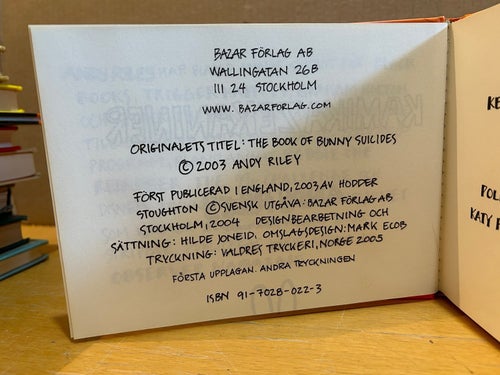 BAZAR FÖRLAG AB
WALLINGATAN 26B
111 24 STOCKHOLM
WWW. BAZARFORLAG.COM
ORIGINALETS TITEL: THE BOOK OF BUNNY SUICIDES
© 2003 ANDY RILEY
FÖRST PUBLICERAD I ENGLAND, 2003 AV HODDER
STOUGHTON © SVENSK UTGÅVA: BAZAR FÖRLAG AB
STOCKHOLM, 2004 DESIGNBEARBETNING OCH
SÄTTNING: HILDE JONEID. OMSLAGSDESIGN: MARK ECOB
TRYCKNING: VALDRES TRYCKERI, NORGE 2005
FÖRSTA UPPLAGAN. ANDRA TRYCKNINGEN
ISBN 91-7028-022-3
KATY